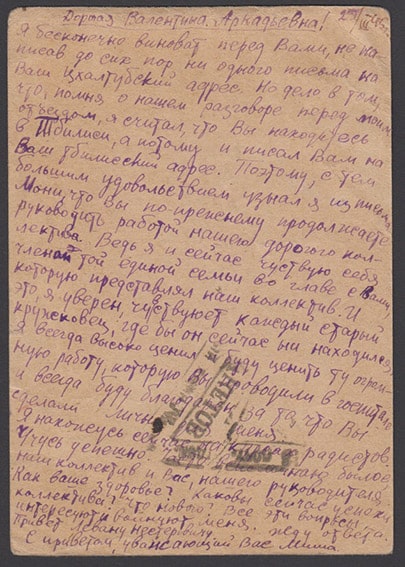 Дорогая Валентина Аркадьевна! 27/III
Я бесконечно виноват перед Вами, не на-
писав до сих пор ни одного письма на
Ваш Цхалтубский адрес. Но дело в том,
что, помня о нашем разговоре перед моим
отъездом, я считал, что Вы находитесь
в Тбилиси, а потому и писал Вам на
Ваш тбилисский адрес. Поэтому, с тем
большим удовольствием узнал я из письма
Мони, что Вы по-прежнему продолжаете
руководить работой нашего дорогого кол-
лектива. Ведь я и сейчас чуствую себя
членом той единой семьи во главе с Вами,
которую представлял наш коллектив. И
это, я уверен, чувствует каждый старый
кружковец, где бы он сейчас ни находился.
Я всегда высоко ценил и буду ценить ту огром-
ную работу, которую вы проводили в госпитале
и всегда буду благодарен за то, что Вы
сделали лично меня.
Я нахожусь сейчас на радистов.
Учусь успешно. былое,
наш коллектив и Вас, нашего руководителя
Как ваше здоровье? Каковы сейчас успехи
коллектива? Что нового? Все эти вопросы
интересуют и волнуют меня. Жду ответа.
Привет Левану Нестеровичу.
С приветом, уважающий Вас Миша